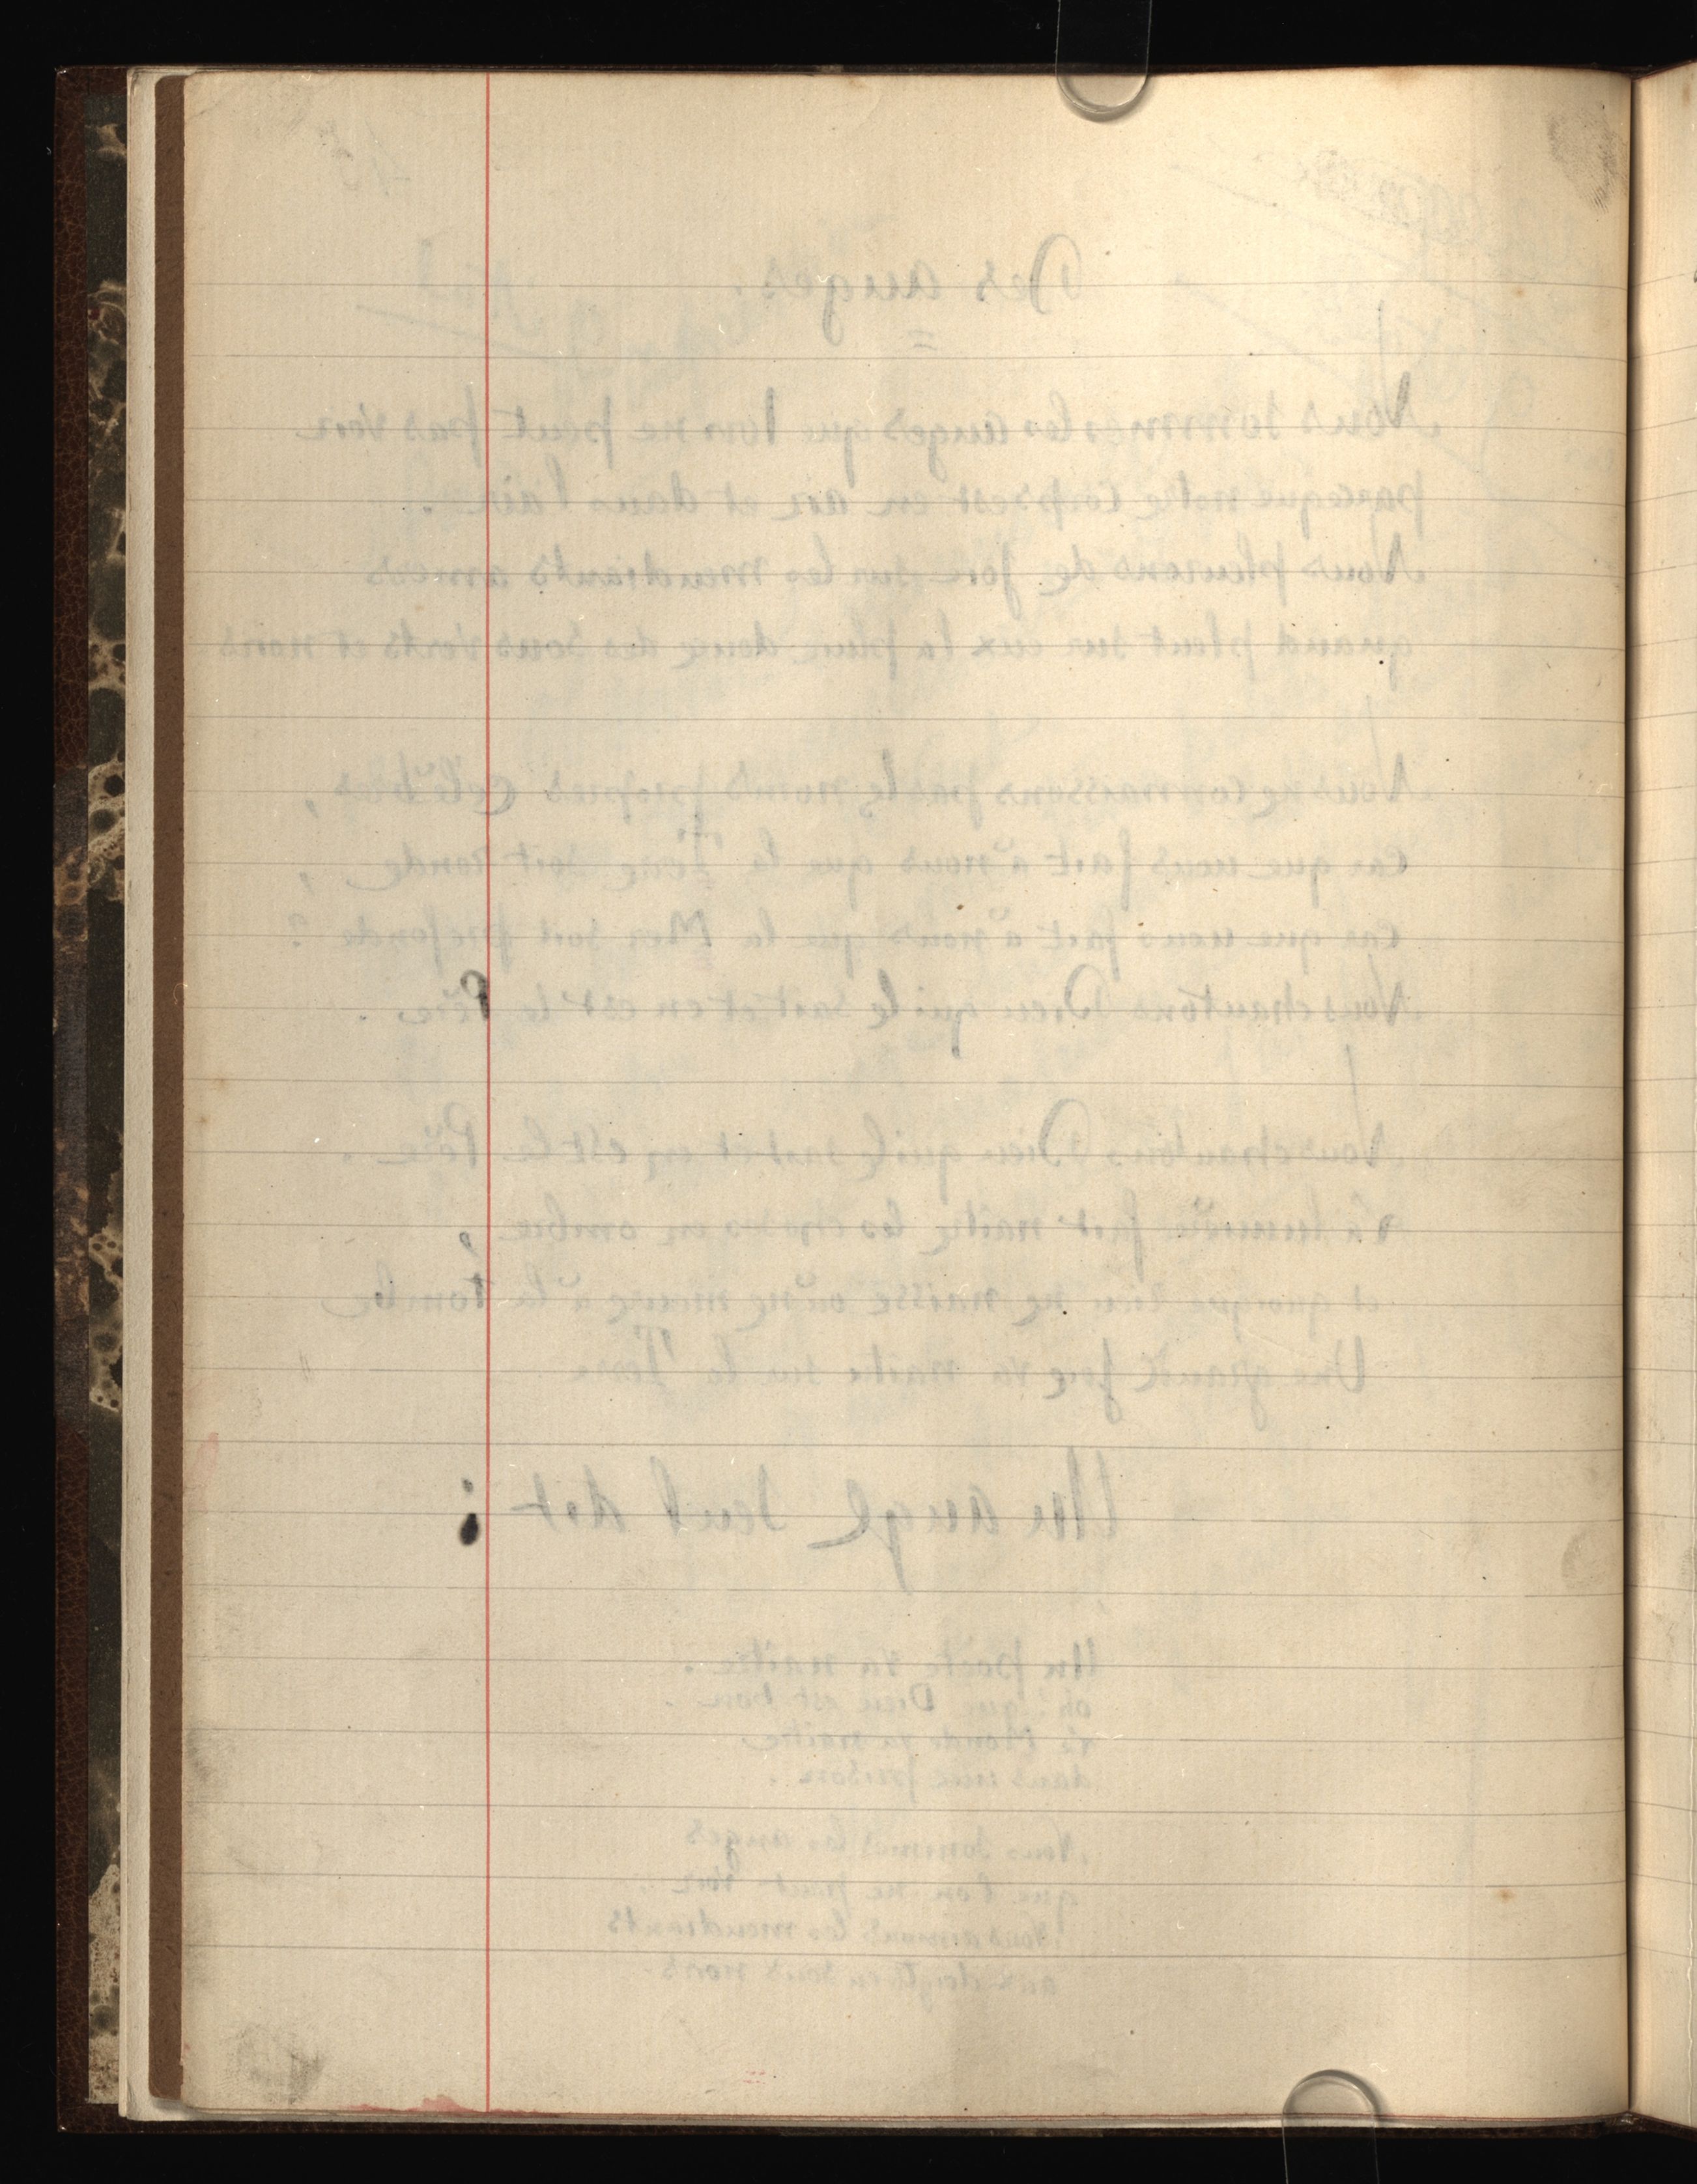 45
Des anges.
Nous sommes les anges que l'on ne peut pas voir
parceque notre corps est en air et dans l'air.
Nous pleurons de joie sur les mendiants amers
quand pleut sur eux la pluie douce des sous verts et noirs
Nous ne connaissons pas les noms propres célèbres,
car que nous fait à nous que la Terre soit ronde,
car que nous fait à nous que la Mer soit profonde ?
Nous chantons Dieu qui le sait et en est le Père.
Nous chantons Dieu qui le sait et en est le Père.
La lumière fait naître les choses en ombre,
et quoique rien ne naisse où ne meure à la tombe
Une grande joie va naître sur la Terre
Un ange seul dit :
Un poète va naître.
oh ! que Dieu est bon.
Le Monde va naître
dans une prison.
Nous sommes les anges
que l'on ne peut voir
Nous aimons les mendiants
aux doigts en sous noirs.